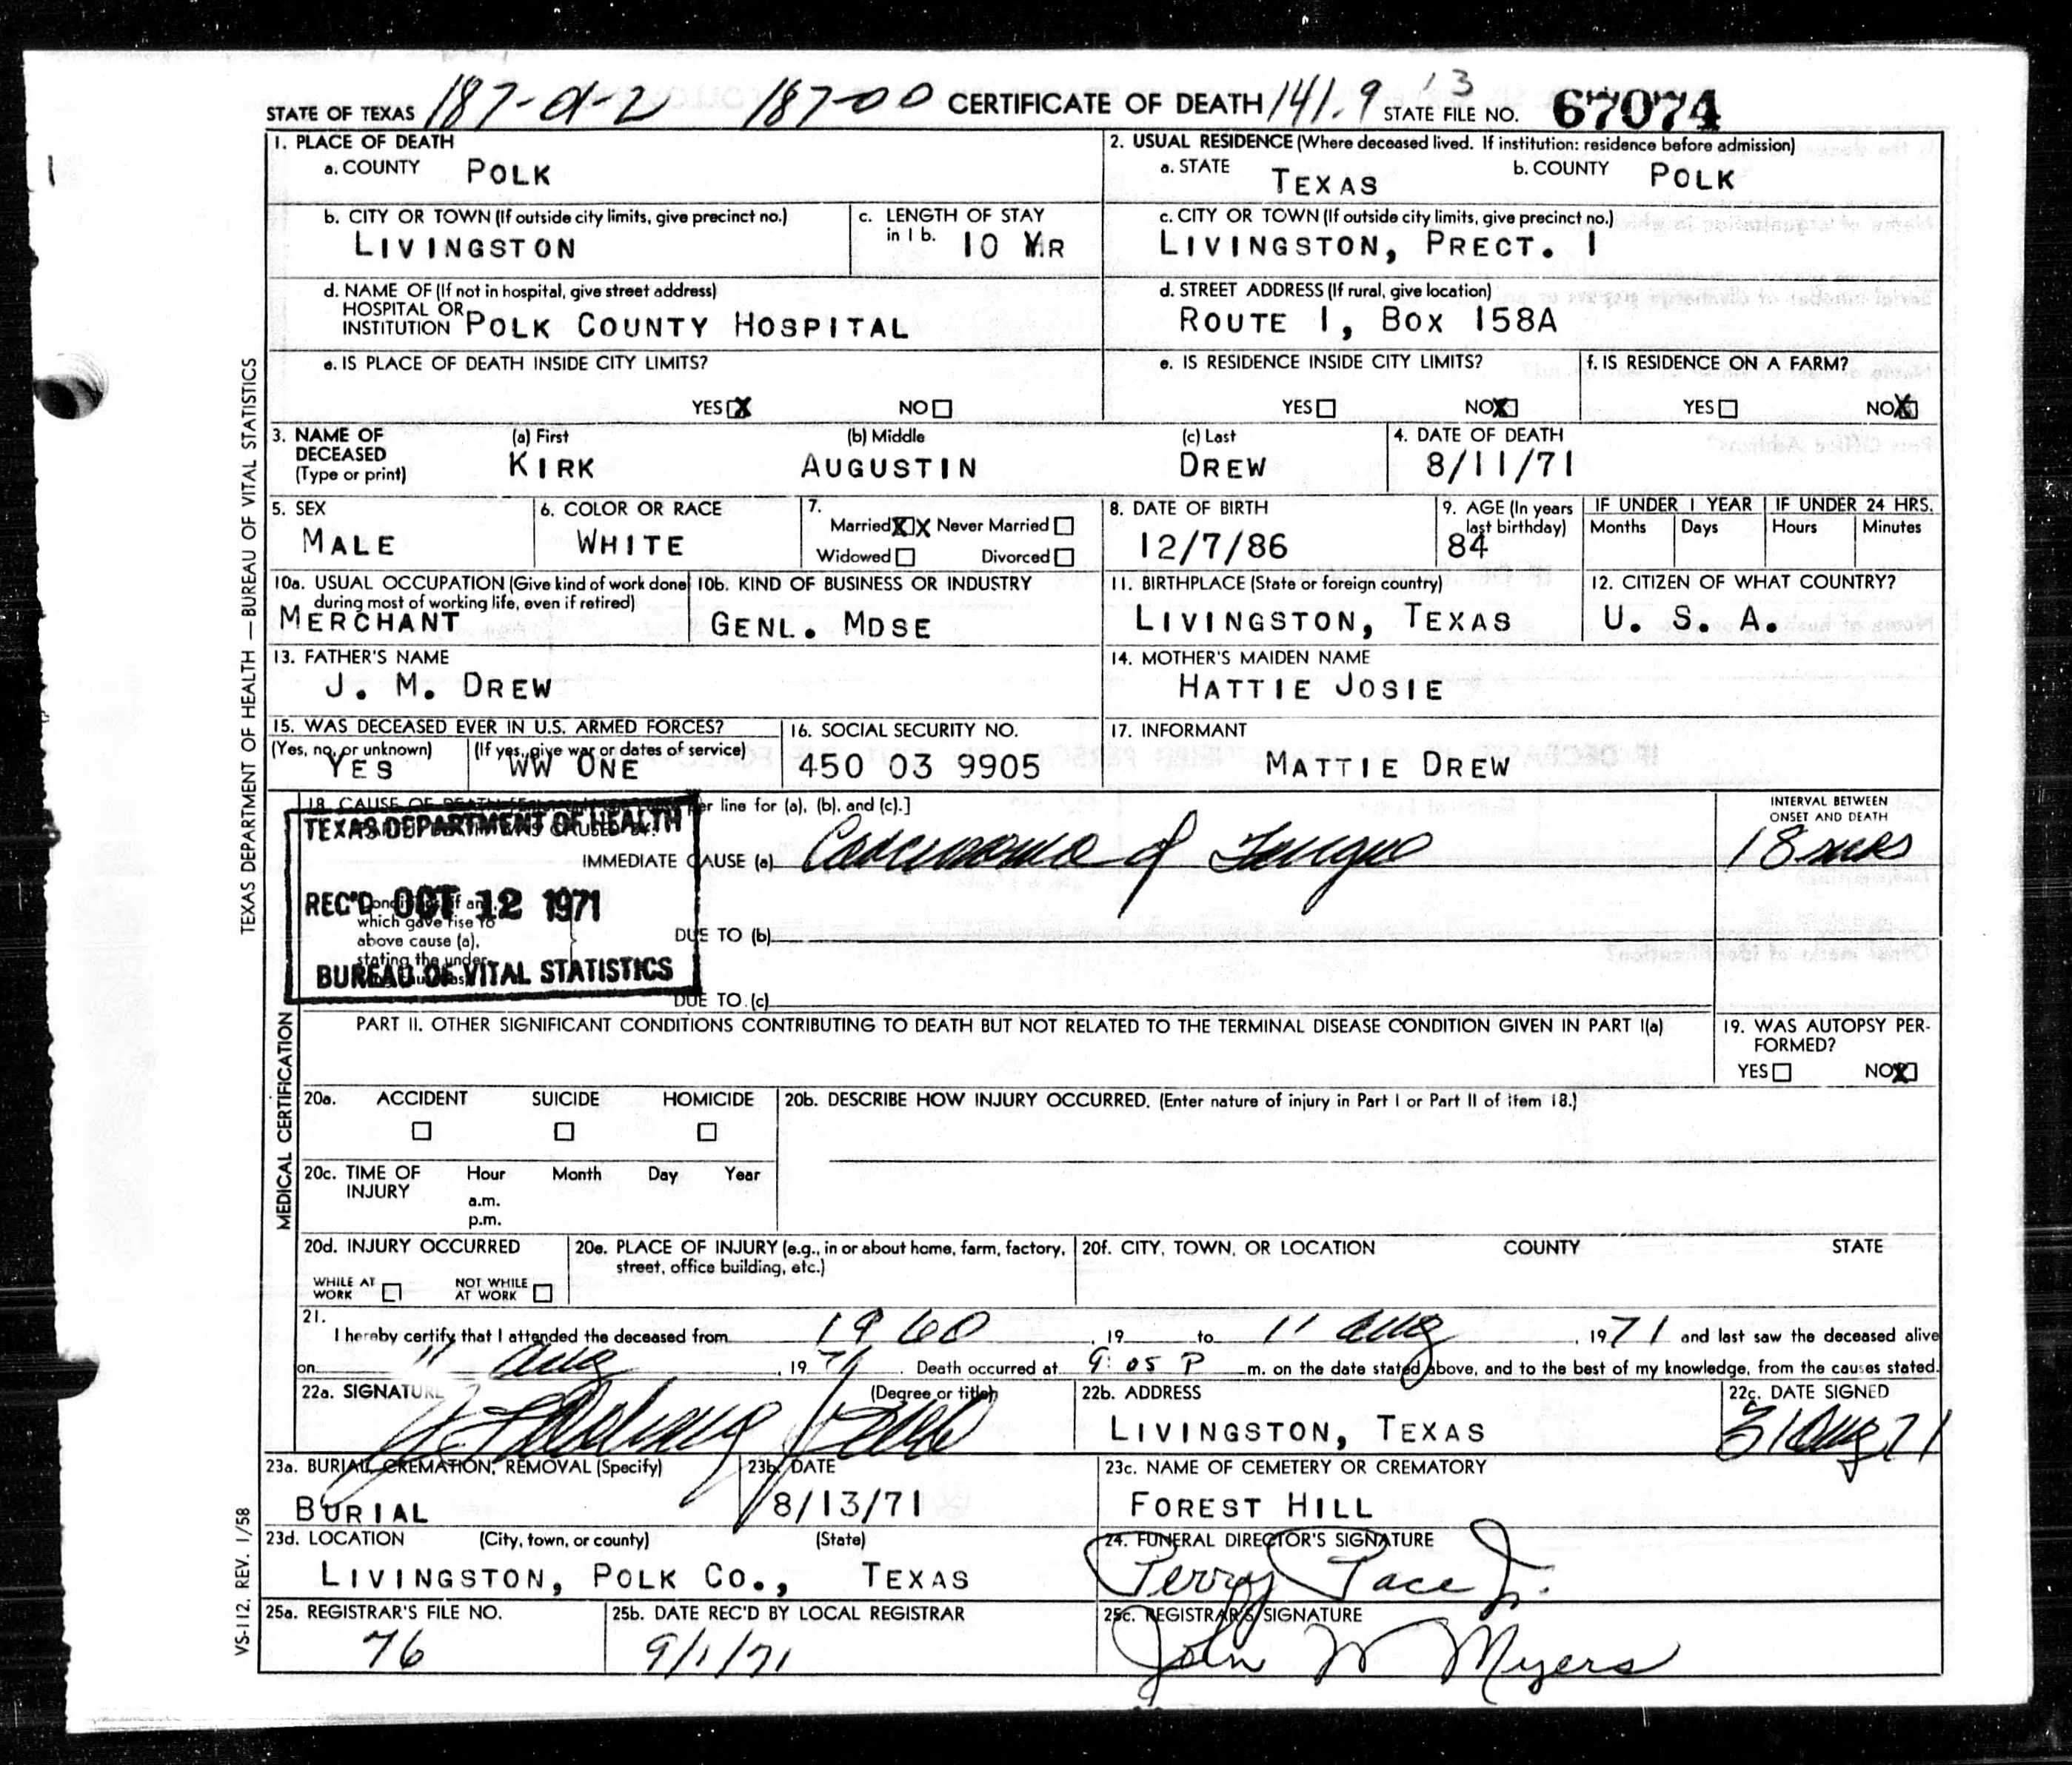 STATE OF TEXAS 187-a-2 187-00 CERTIFICATE OF DEATH 141.9 13 STATE FILE NO. 67074
1. PLACE OF DEATH
a. COUNTY POLK
2. USUAL RESIDENCE (Where deceased lived. If institution: residence before admission)
a. STATE TEXAS b. COUNTY POLK
b. CITY OR TOWN (If outside city limits, give precinct no.)
LIVINGSTON
c. LENGTH OF STAY
in 1 b. 10 YR
c. CITY OR TOWN (If outside city limits, give precinct no.)
LIVINGSTON, PRECT. 1
d. NAME OF (If not in hospital, give street address)
HOSPITAL OR
INSTITUTION POLK COUNTY HOSPITAL
d. STREET ADDRESS (If rural, give location)
ROUTE 1, BOX 158A
e. IS PLACE OF DEATH INSIDE CITY LIMITS?
YES X NO
e. IS RESIDENCE INSIDE CITY LIMITS?
YES NO X
f. IS RESIDENCE ON A FARM?
YES NO X
3. NAME OF
DECEASED
(Type or print)
(a) First
KIRK
(b) Middle
AUGUSTIN
(c) Last
DREW
4. DATE OF DEATH
8/11/71
5. SEX
MALE
6. COLOR OR RACE
WHITE
7.
Married XX Never Married
Widowed Divorced
8. DATE OF BIRTH
12/7/86
9. AGE (In years
last birthday)
84
IF UNDER 1 YEAR
Months Days
IF UNDER 24 HRS.
Hours Minutes
10a. USUAL OCCUPATION (Give kind of work done
during most of working life, even if retired)
MERCHANT
10b. KIND OF BUSINESS OR INDUSTRY
GENL. MDSE
11. BIRTHPLACE (State or foreign country)
LIVINGSTON, TEXAS
12. CITIZEN OF WHAT COUNTRY?
U. S. A.
13. FATHER'S NAME
J. M. DREW
14. MOTHER'S MAIDEN NAME
HATTIE JOSIE
15. WAS DECEASED EVER IN U.S. ARMED FORCES?
(Yes, no, or unknown)
YES
(If yes, give war or dates of service)
WW ONE
16. SOCIAL SECURITY NO.
450 03 9905
17. INFORMANT
MATTIE DREW
18. CAUSE OF DEATH per line for (a), (b), and (c).]
TEXAS DEPARTMENT OF HEALTH
REC'D OCT 12 1971
BUREAU OF VITAL STATISTICS
IMMEDIATE CAUSE (a) Carcinoma of Tongue
INTERVAL BETWEEN
ONSET AND DEATH
18 mos
which gave rise to
above cause (a),
stating the under
DUE TO (b)
DUE TO (c)
PART II. OTHER SIGNIFICANT CONDITIONS CONTRIBUTING TO DEATH BUT NOT RELATED TO THE TERMINAL DISEASE CONDITION GIVEN IN PART I(a)
19. WAS AUTOPSY PER-
FORMED?
YES NO X
20a. ACCIDENT SUICIDE HOMICIDE
20b. DESCRIBE HOW INJURY OCCURRED. (Enter nature of injury in Part I or Part II of item 18.)
20c. TIME OF
INJURY
Hour Month Day Year
a.m.
p.m.
20d. INJURY OCCURRED
WHILE AT
WORK
NOT WHILE
AT WORK
20e. PLACE OF INJURY (e.g., in or about home, farm, factory,
street, office building, etc.)
20f. CITY, TOWN, OR LOCATION COUNTY STATE
21.
I hereby certify that I attended the deceased from 1960, 19 to 11 Aug, 1971 and last saw the deceased alive
on 11 Aug, 1971. Death occurred at 9:05 P m. on the date stated above, and to the best of my knowledge, from the causes stated.
22a. SIGNATURE (Degree or title)
22b. ADDRESS
LIVINGSTON, TEXAS
22c. DATE SIGNED
31 Aug 71
23a. BURIAL, CREMATION, REMOVAL (Specify)
BURIAL
23b. DATE
8/13/71
23c. NAME OF CEMETERY OR CREMATORY
FOREST HILL
23d. LOCATION (City, town, or county) (State)
LIVINGSTON, POLK CO., TEXAS
24. FUNERAL DIRECTOR'S SIGNATURE
Perry Pace Jr.
25a. REGISTRAR'S FILE NO.
76
25b. DATE REC'D BY LOCAL REGISTRAR
9/1/71
25c. REGISTRAR'S SIGNATURE
John W Myers
TEXAS DEPARTMENT OF HEALTH — BUREAU OF VITAL STATISTICS
MEDICAL CERTIFICATION
VS-112, REV. 1/58